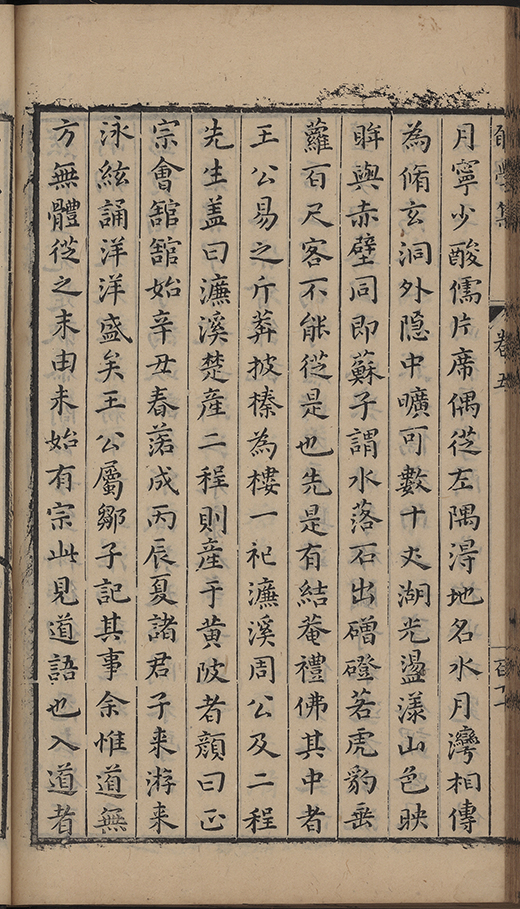 學集 卷五
月寧少酸儒片席偶從左隅淂地名水月灣相傳
為脩玄洞外隐中曠可數十丈湖光盪漾山色映
眸與赤壁同即蘇子謂水落石出磳磴若虎豹垂
蘿百尺客不能從是也先是有結菴禮佛其中者
王公易之斤莽披榛為樓一祀濂溪周公及二程
先生盖曰濂溪楚産二程則産于黄陂者顔曰正
宗會舘舘始辛丑春落成丙辰夏諸君子来游来
泳絃誦洋洋盛矣王公屬鄒子記其事余惟道無
方無體從之末由未始有宗此見道語也入道者